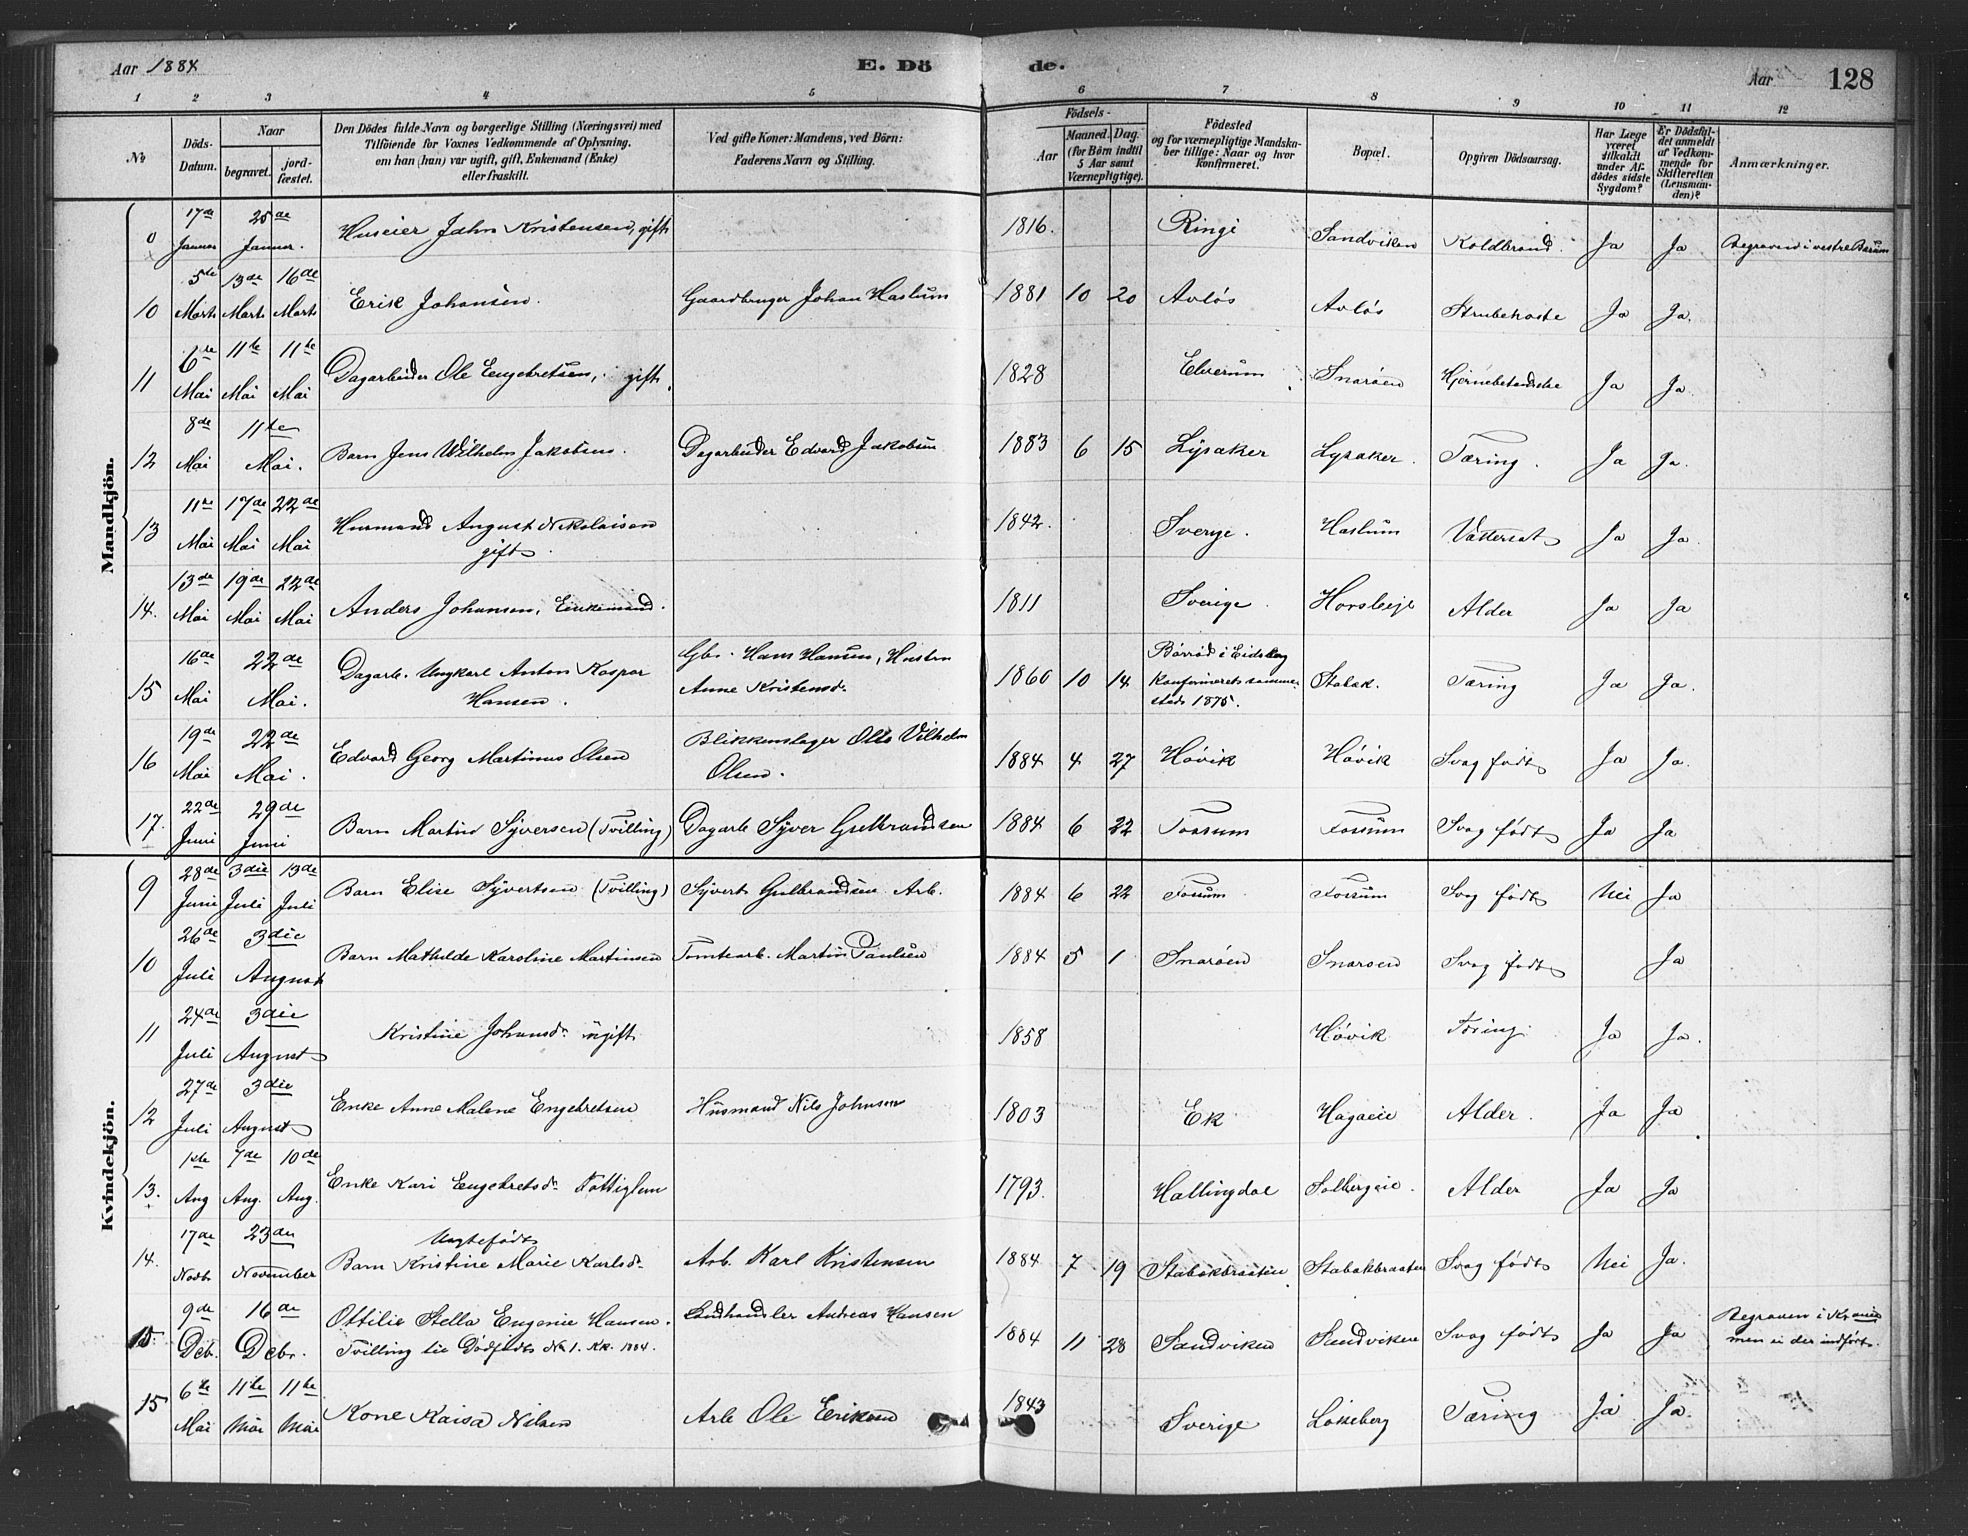 Aar 1884
E. Dö
de.
Aar 128
1 2 3 4 5 6 7 8 9 10 11 12
No
Döds-Datum.
Naar
begravet.
jord-fæstet.
Den Dödes fulde Navn og borgerlige Stilling (Næringsvei) med
Tilföiende for Voxnes Vedkommende af Oplysning.
om han (hun) var ugift, gift, Enkemand (Enke)
eller fraskilt.
Ved gifte Koner: Mandens, ved Börn:
Faderens Navn og Stilling.
Födsels-
Aar
Maaned. Dag.
(for Börn indtil
5 Aar samt
Værnepligtige).
Födested
og for værnepligtige Mandska-
ber tillige: Naar og hvor
konfirmeret.
Bopæl.
Opgiven Dödsaarsag.
Har Læge
været
tilkaldt
under Af-
dödes sidste
Sygdom?
Er Dödsfal-
det anmeldt
af Vedkom-
mende for
Skifteretten
(Lensman-
den)?
Anmærkninger.
Mandkjön.
0 17de Januar 25de Januar. Huseier Jahn Kristensen, gift 1816. Ringi Sandviken Koldbrand. Ja Ja Begraven i vestre Bærum
10 5te Marts 13de Marts 16de Marts Erik Johansen. Gaardbruger Johan Haslum 1881 10 20 Avløs Avløs Strubehoste Ja Ja.
11 6te Mai 11te Mai 11te Mai Dagarbeider Ole Engebretsen, gift. 1828 Elverum Snarøen Hjernebetændelse Ja Ja.
12 8de Mai 11te Mai. Barn Jens Wilhelm Jakobsen. Dagarbeider Edvard Jakobsen 1883 6 15 Lysaker Lysaker. Tæring. Ja Ja.
13 11te Mai 17de Mai 22de Mai Husmand August Nikolaisen gift. 1842. Sverge. Haslum Vattersot Ja Ja.
14. 13de Mai 19de Mai 22de Mai Anders Johansen, Enkemand. 1811 Sverige. Horsleeje Alder Ja Ja
15 16de Mai 22de Mai. Dagarb. Ungkarl Anton Kaspar Hansen. Gbr. Hans Hansen, Hustru Anne Kristensdr. 1860 10 14 Børrød i Eidskog Konfirmeret samme-steds 1875. Stabæk. Tæring Ja Ja.
16 19de Mai 22de Mai. Edvard Georg Martinus Olsen Blikkenslager Otto Vilhelm Olsen. 1884 4 27 Høvik Høvik Svag født Ja Ja.
17. 22de Juni 29de Juni Barn Martin Syversen (Tvilling) Dagarb Syver Gulbrandsen 1884 6 22 Fossum Fossum Svag født Ja Ja
Kvindekjön.
9 28de Juni 3die Juli 13de Juli Barn Elise Syvertsen (Tvilling) Syvert Gulbrandsen Arb. 1884 6 22 Fossum Fossum Svag født Nei Ja
10 26de Juli 3die August Barn Mathilde Karoline Martinsen Tomtearb. Martin Paulsen 1884 5 1 Snarøen Snarøen Svag født Ja
11 24de Juli 3die August Kristine Johansdr. ugift 1858 Høvik Tæring. Ja Ja.
12 27de Juli 3die August Enke Anne Malene Engebretsen Husmand Nils Johnsen 1803 Ek Hagaeie Alder. Ja Ja
13. 1ste Aug 7de Aug. 10de Aug. Enke Kari Engebretsdr. Fattiglem 1793. Hallingdal Solbergeie. Alder Ja Ja
14. 17de Novbr 23de November Uægtefødt Barn Kristine Marie Karlsdr. Arb. Karl Kristensen 1884 7 19 Stabækbraaten Stabækbraaten Svag født Nei Ja.
15. 9de Deb. 16de Debr. Ottilie Stella Eugenie Hansen. Tvilling til Dødfødt No 1. KK. 1884. Landhandler Andreas Hansen 1884 11 28 Sandviken Sandviken Svag født Ja Ja Begraven i Kr.ania men ei der indført.
15 6te Mai 11te Mai 11te Mai Kone Kaisa Nilsen Arb Ole Eriksen 1843 Sverige Løkeberg Tæring Ja Ja.